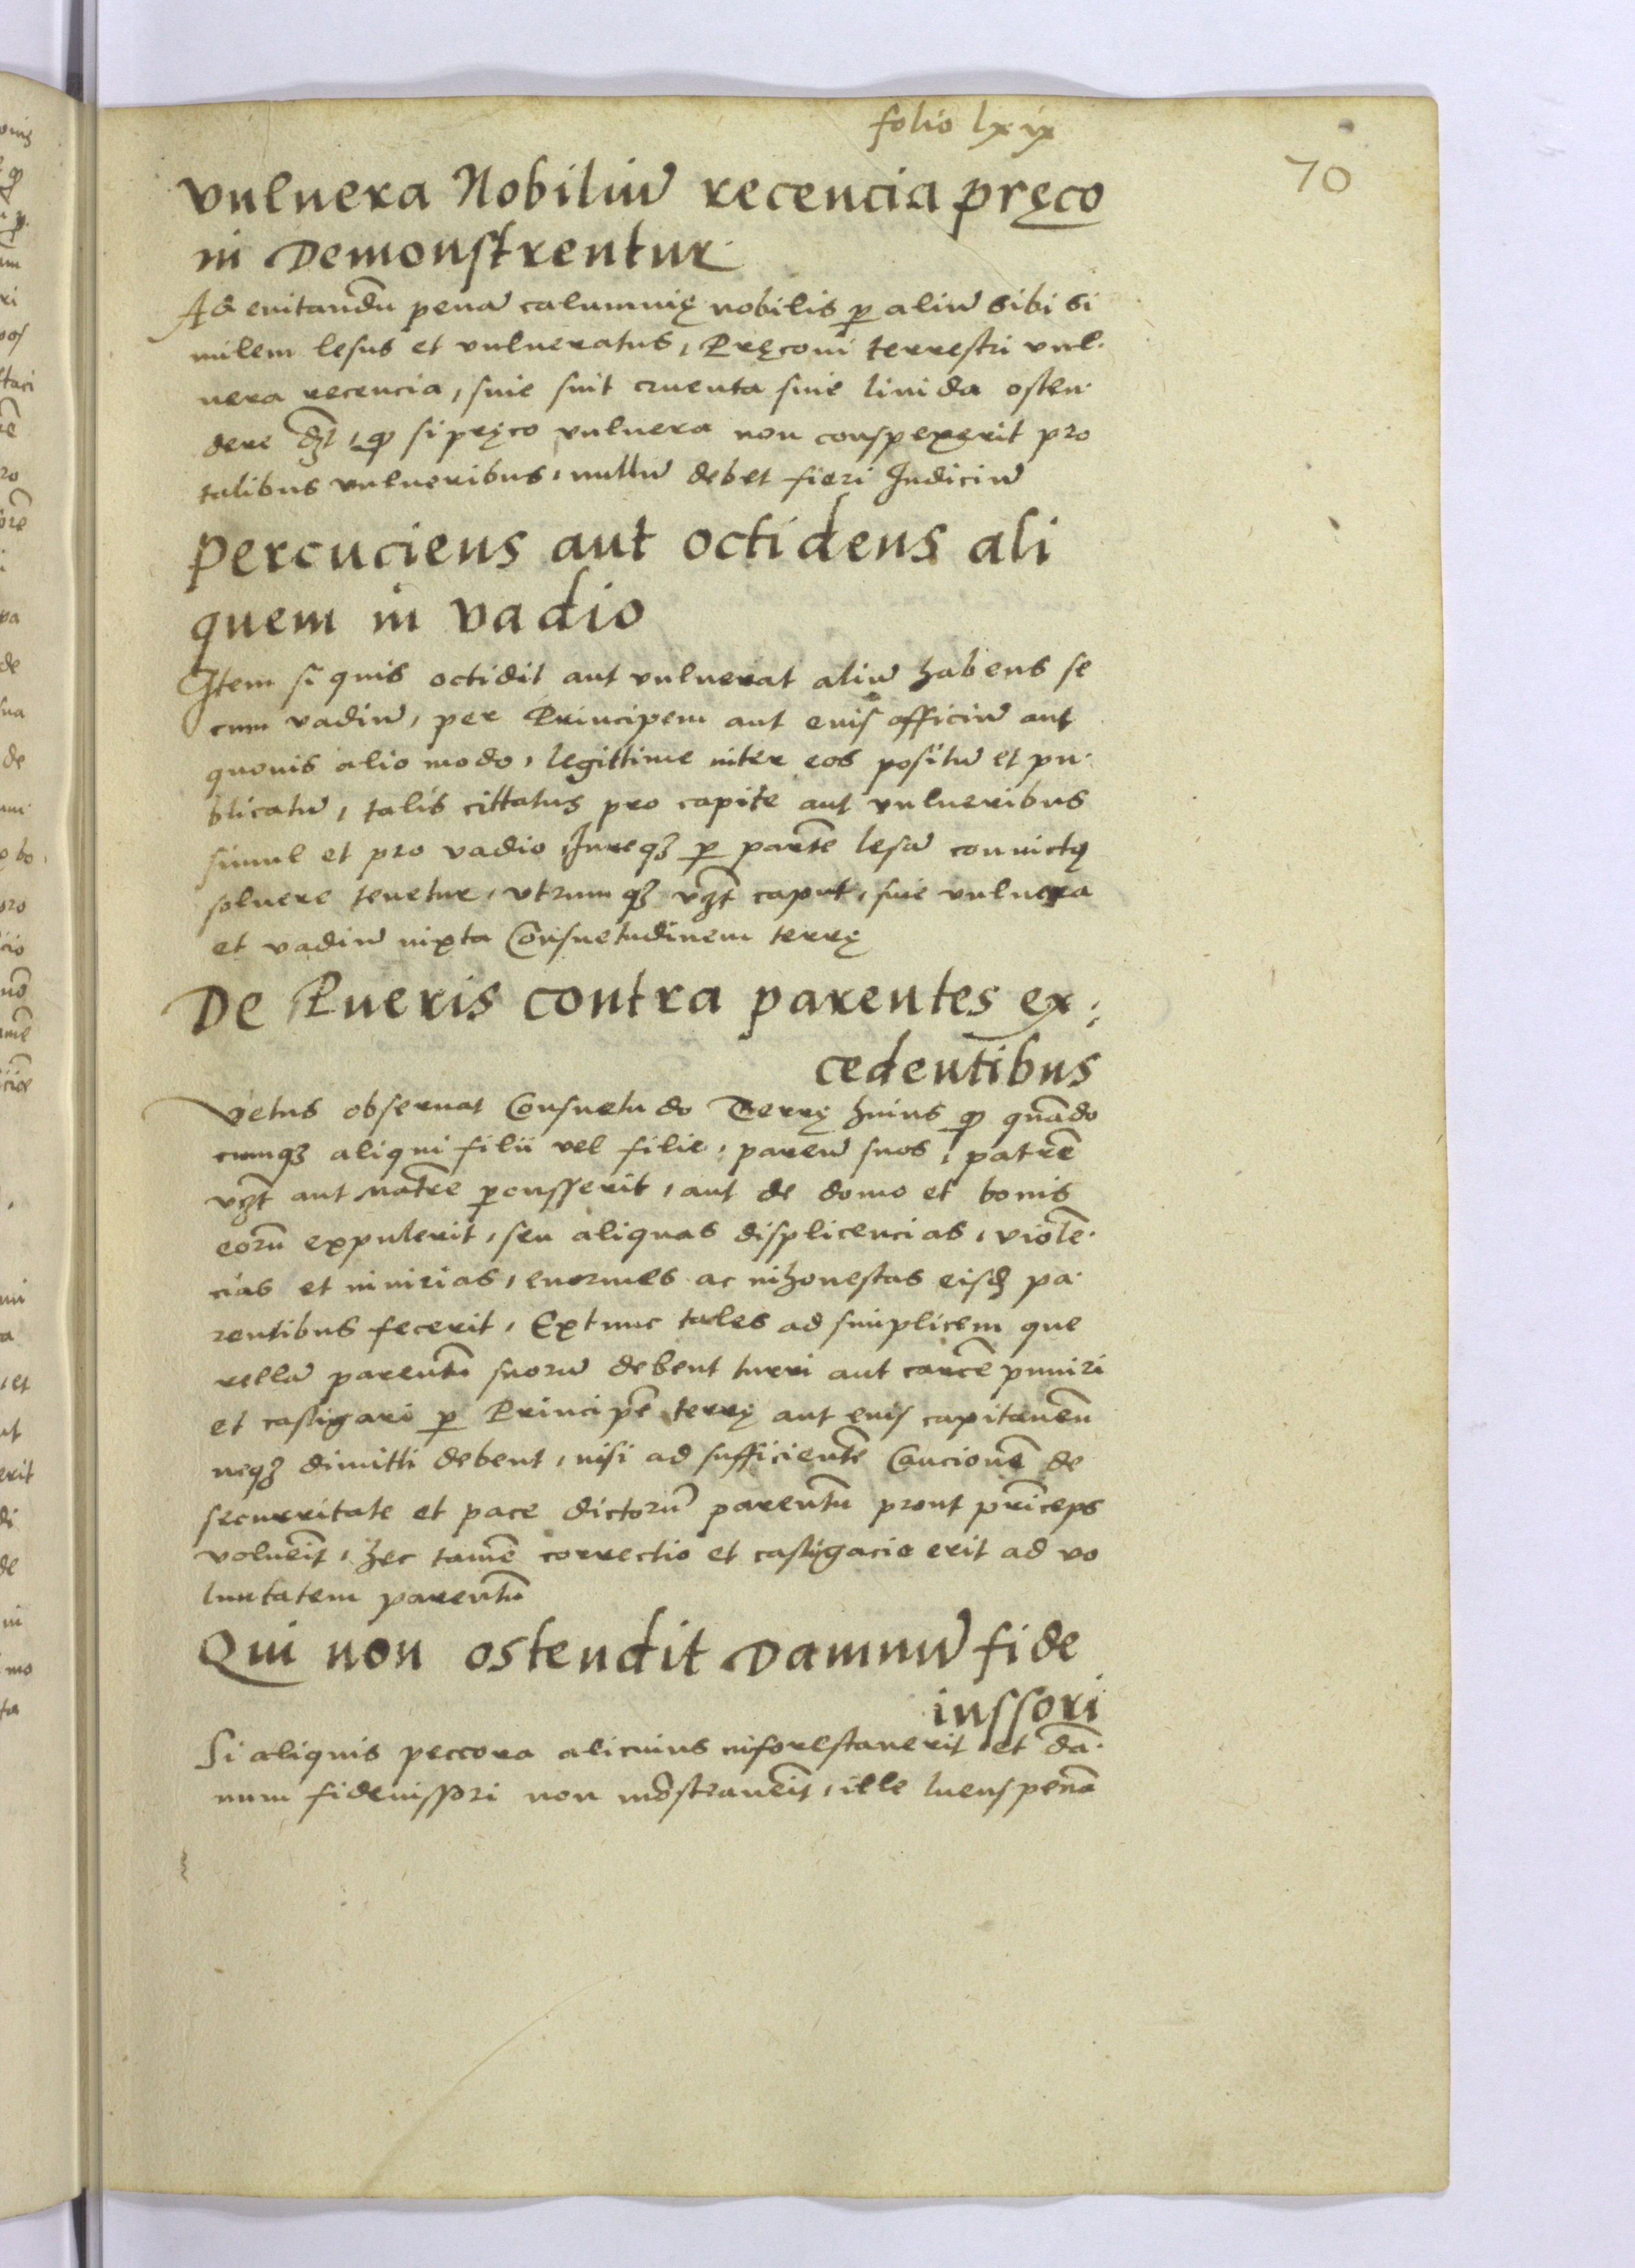 folio lxix
70
Vulnera Nobiliũ recencia pręco
ni Demonstrentur
Ad euitandũ penã calumnię nobilis ꝑ aliũ sibi si
milem lesus et vulneratus, Pręconi terrestri vul-
nera recencia, siue sint cruenta siue liuida osten-
dere dꝫt, ꝙ si pręco vulnera non conspexerit pro
talibus vulneribus, nullũ debet fieri Judiciũ
Percuciens aut octidens ali
quem in vadio
Item si quis octidit aut vulnerat aliũ habens se
cum vadiũ, per Principem aut eius officiũ aut
quouis alio modo, legittime inter eos positũ et pu-
blicatũ, talis cittatus pro capite aut vulneribus
simul et pro vadio Jureqꝫ ꝑ partẽ lesã conuictꝰ
soluere tenetur, vtrumqꝫ vꝫt caput, siue vulnera
et vadiũ iuxta Consuetudinem terrę
De Pueris contra parentes ex:
cedentibus
Vetus obseruat Consuetudo Terrę huius ꝙ quãdo
cumqꝫ aliqui filii vel filie, parẽtes suos, patrẽ
vꝫt aut matrẽ ꝑcusserit, aut de domo et bonis
eorũ expulerit, seu aliquas displicencias, violẽ-
cias et iniurias, enormes ac inhonestas eisdẽ pa-
rentibus fecerit, Extunc tales ad simplicem que
rellã parentũ suorũ debent turri aut carcẽ puniri
et castigari ꝑ Principẽ terrę aut eius capitaneũ
neqꝫ dimitti debent, nisi ad sufficientẽ Caucionẽ de
securritate et pace dictorũ parentũ prout prĩceps
voluerit, hec tamẽ correctio et castigacio erit ad vo
luntatem parentũ
Qui non ostendit Damnũ fide
iussori
Si aliquis peccora alicuius inforestauerit et dã-
num fideiussori non mõstrauerit, ille luens penã